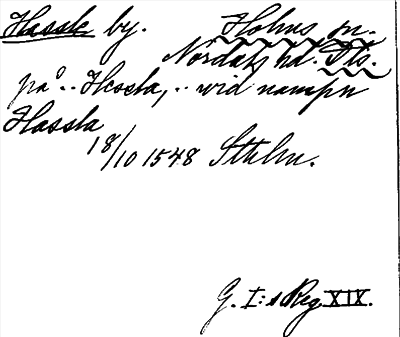 Hassle by. Holms sn.
Nordals hd. Dls.
på .. Hessla, .. wid nampn
Hassla
18/10 1548 Sthlm.
G. I:s Reg XIX.